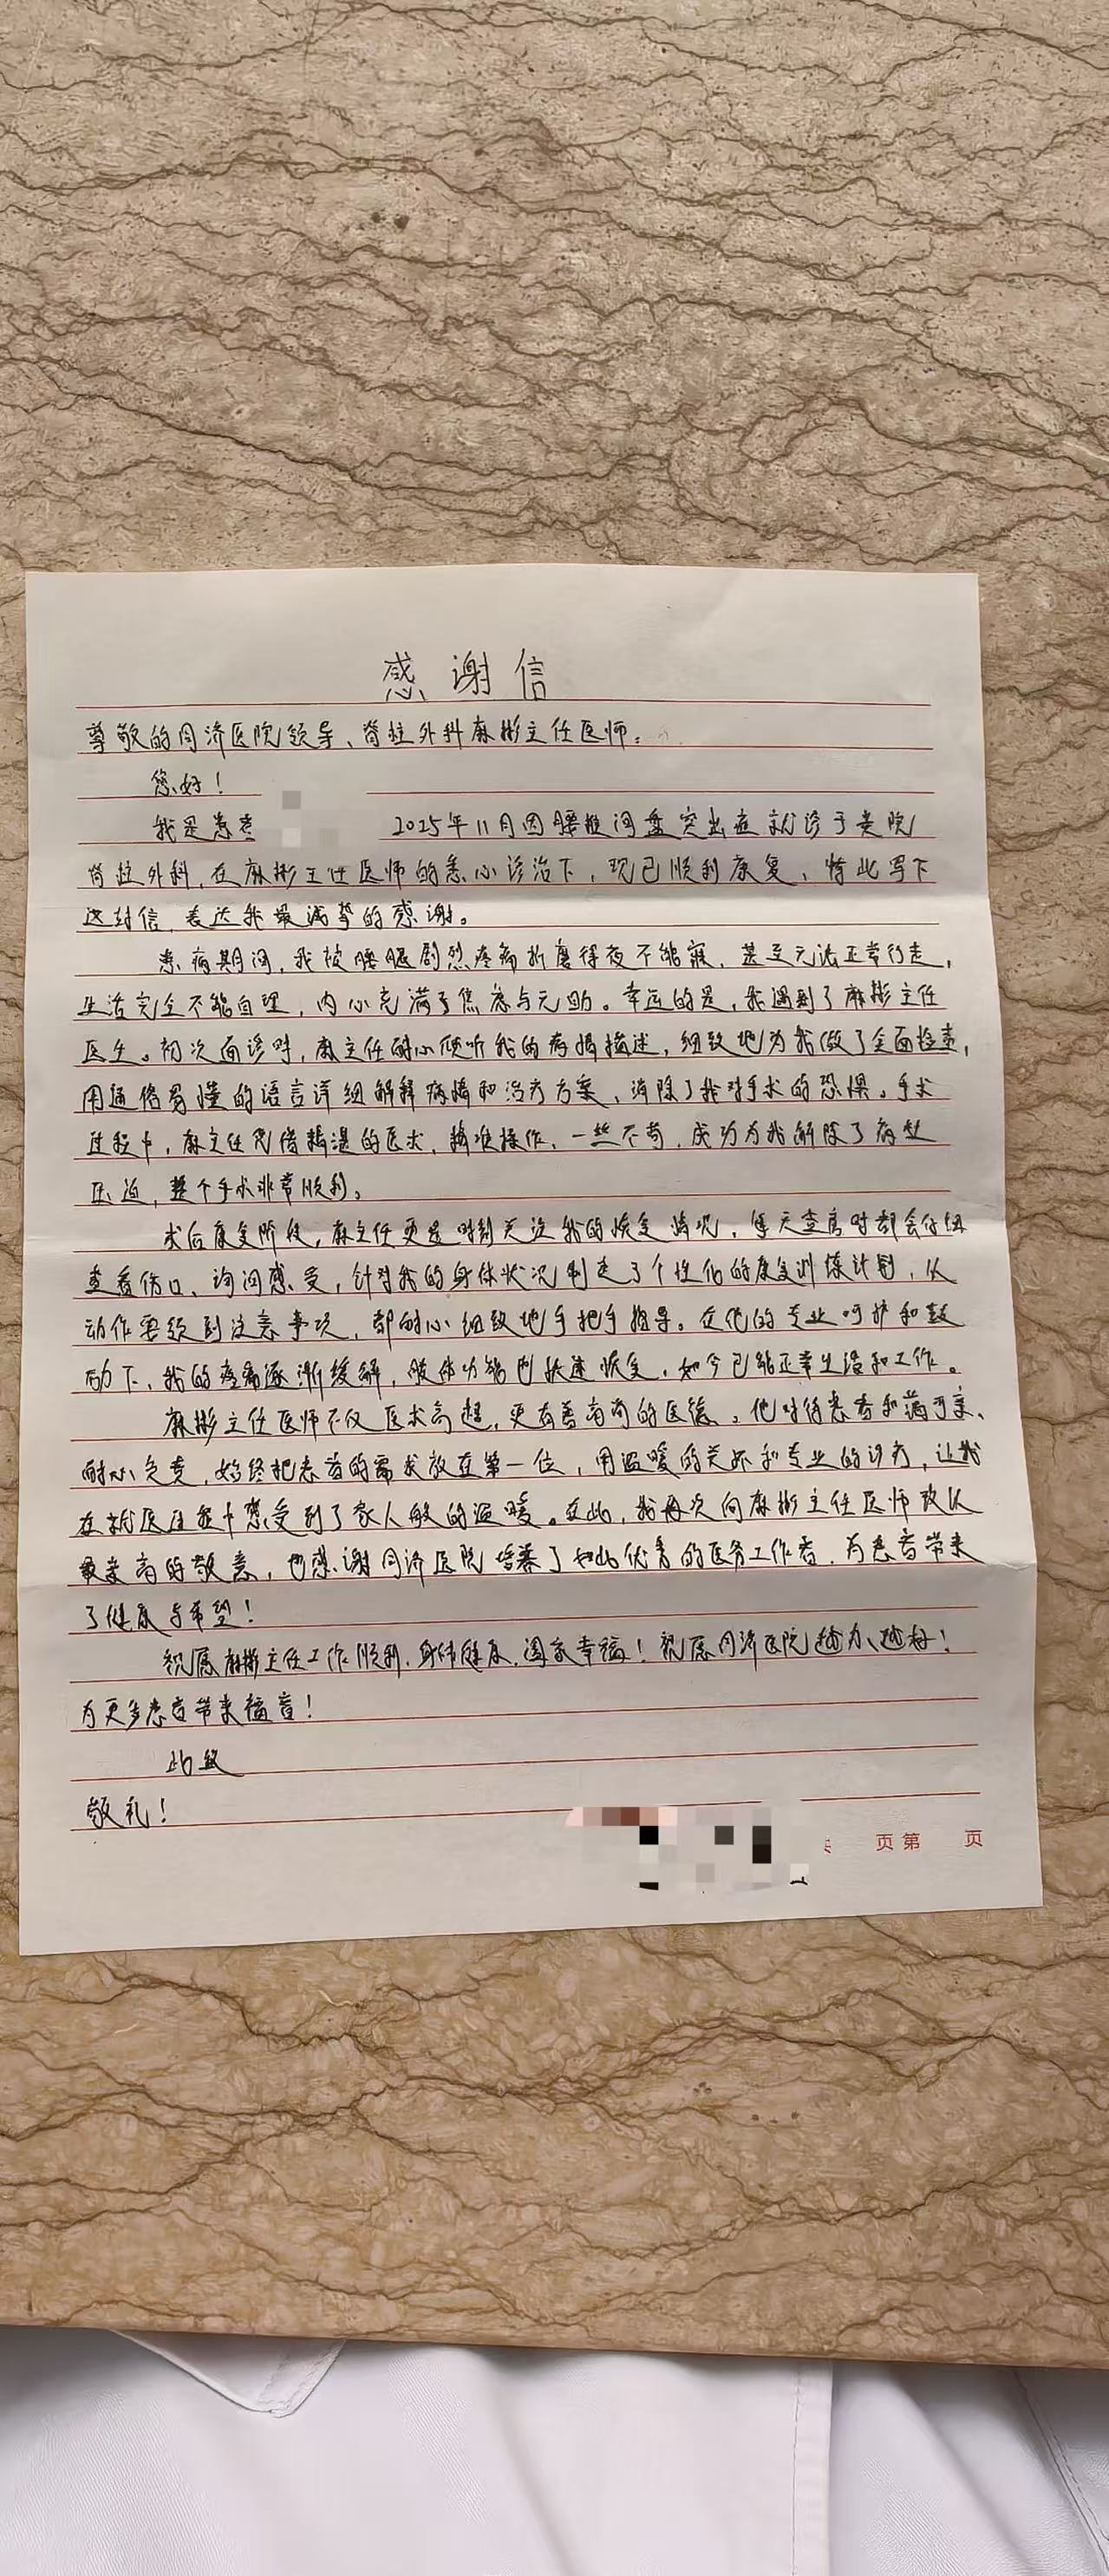 感谢信
尊敬的同济医院领导、脊柱外科麻彬主任医师：
您好！
我是患者 2025年11月因腰椎间盘突出症就诊于贵院
脊柱外科，在麻彬主任医师的悉心诊治下，现已顺利康复，特此写下
这封信，表达我最诚挚的感谢。
患病期间，我被腰腿剧烈疼痛折磨得夜不能寐，甚至无法正常行走，
生活完全不能自理，内心充满了焦虑与无助。幸运的是，我遇到了麻彬主任
医生。初次面诊时，麻主任耐心倾听我的病情描述，细致地为我做了全面检查，
用通俗易懂的语言详细解释病情和治疗方案，消除了我对手术的恐惧。手术
过程中，麻主任凭借精湛的医术，精准操作、一丝不苟，成功为我解除了病灶
压迫，整个手术非常顺利。
术后康复阶段，麻主任更是时刻关注我的恢复情况，每天查房时都会仔细
查看伤口、询问感受，针对我的身体状况制定了个性化的康复训练计划，从
动作要领到注意事项，都耐心细致地手把手指导。在他的专业呵护和鼓
励下，我的疼痛逐渐缓解，肢体功能也快速恢复，如今已能正常生活和工作。
麻彬主任医师不仅医术高超，更有着高尚的医德。他对待患者和蔼可亲、
耐心负责，始终把患者的需求放在第一位，用温暖的关怀和专业的诊疗，让我
在就医过程中感受到了家人般的温暖。在此，我再次向麻彬主任医师致以
最崇高的敬意，也感谢同济医院培养了如此优秀的医务工作者，为患者带来
了健康与希望！
祝愿麻彬主任工作顺利，身体健康，阖家幸福！祝愿同济医院越办越好！
为更多患者带来福音！
此致
敬礼！
页第 页